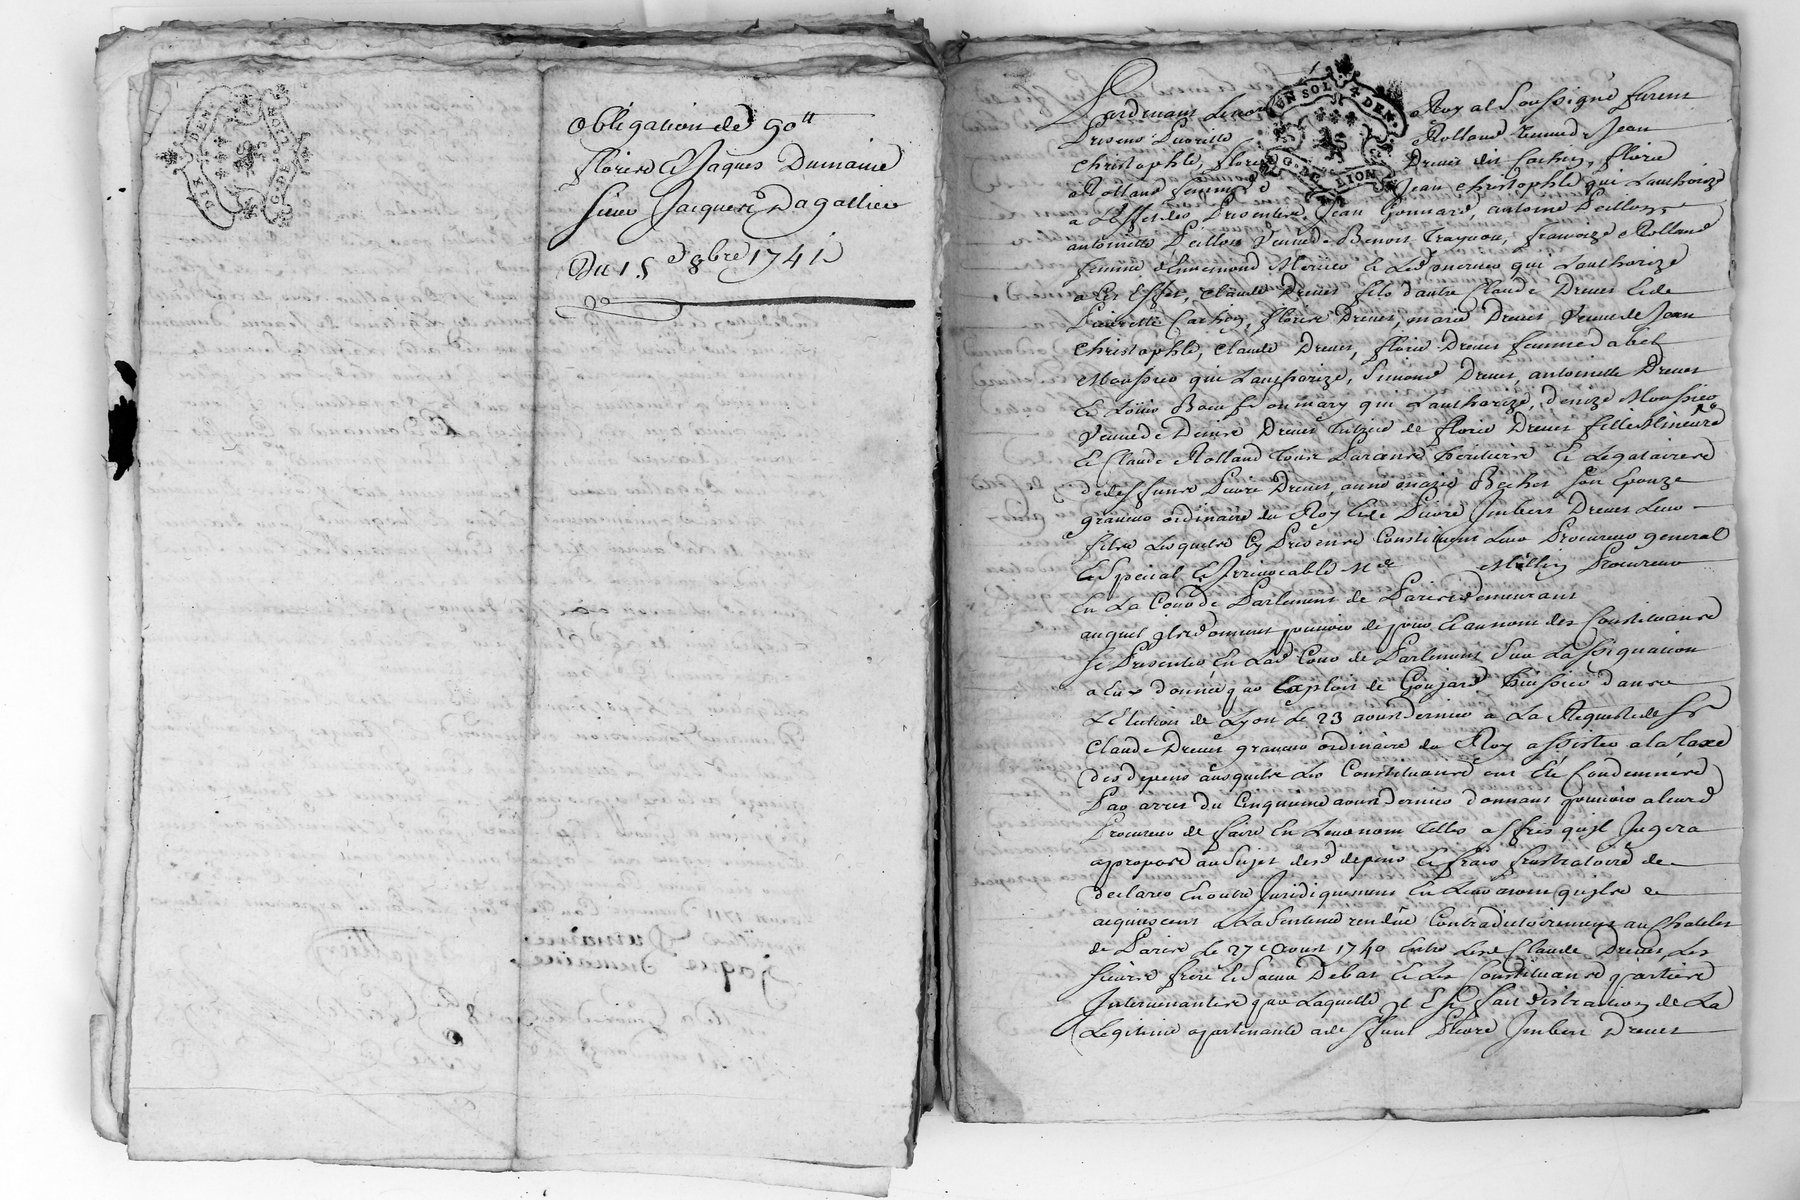 DEN
G. DE LION
Obligation de 90tt
Florise et Jaques Dumaine
sieur Jacques Dagallier
Du 15e 8bre 1741
UN SOL 4 DEN.
G. DE LION
Pardevant Royal soussigné furent
Presens Pierette Rolland Jean
Christophle, Drevet dit Cachin, florie
Rolland femme de Jean Christophle qui Lauthorize
a Leffet des Presentes Jean Gonnard, antoine Peillon,
antoinette Peillon Benoit françoize Rolland
femme et Led mercier qui Lauthorize
a Ces Effet, Claude Drevet fils dautre Claude Drevet et de
Pierrette Cachin, Drevet, marie Drevet Jean
Christophle, Claude Drevet, florie Drevet femme dabel
Moussier qui Lauthorize, Simone Drevet, antoinette Drevet
et son mary qui Lauthorize, denize Moussier
Denis Drevet tutrice de florie Drevet fille Mineure
et Claude Rolland tous Parans heritiers et Legataires
de deffunts Pierre Drevet, anne marie Bechet son Epouze
graveur ordinaire du Roy et de Pierre Imbert Drevet Leur
fils Lesquels Cy Presens Constituent Leur Procureur general
et special et irrevocable Me Millin Procureur
En La Cour de Parlement de Paris y demeurant
auquel ils donnent pouvoir de pour et au nom des Constituans
se Presenter En Lad Cour de Parlement Sur Lassignation
a Eux donnée par Exploit de Goujard huissier dans
LElection de Lyon Le 23 aoust dernier a La Requeste de Sr
Claude Drevet graveur ordinaire du Roy assister a la taxe
des depens ausquels Les Constituans ont Eté Condemnés
Par arret du Cinquieme aoust dernier donnant pouvoir aleurd
Procureur de faire En Leur nom telles offres quil Jugera
apropos au Sujet desd depens et frais frustratoires de
declarer Enoutre Juridiquement En Leur nom quils
acquiescent a La Sentence rendüe Contradictoirement au Chatelet
de Paris Le 27e aoust 1740 entre Led Claude Drevet, Les
sieurs frere et Saeur Debat et Les Constituans parties
Intervenantes par Laquelle il Est fait distraction de La
Legitime apartenante a deffunt Pierre Imbert Drevet
Dumaine
Jaque Dumaine